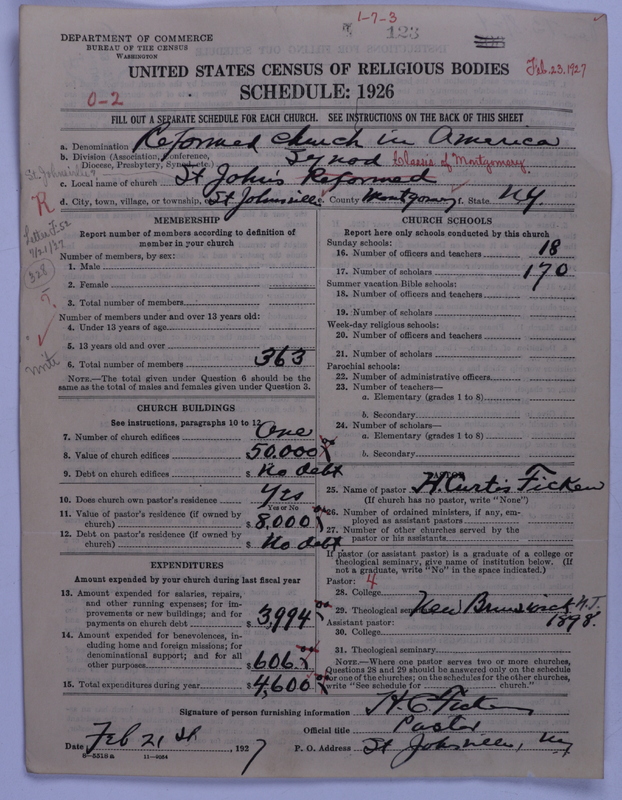 1-7-3
123
DEPARTMENT OF COMMERCE
BUREAU OF THE CENSUS
WASHINGTON
UNITED STATES CENSUS OF RELIGIOUS BODIES
Feb. 23, 1927
SCHEDULE: 1926
0-2
FILL OUT A SEPARATE SCHEDULE FOR EACH CHURCH. SEE INSTRUCTIONS ON THE BACK OF THIS SHEET
a. Denomination Reformed Church in America
b. Division (Association, Conference, Diocese, Presbytery, Synod, etc.) Synod Classis of Montgomery
c. Local name of church St John's Reformed
d. City, town, village, or township, St Johnsville County Montgomery f. State NY
R
328
MEMBERSHIP
Report number of members according to definition of member in your church
Number of members, by sex:
1. Male
2. Female
3. Total number of members
Number of members under and over 13 years old:
4. Under 13 years of age
5. 13 years old and over
6. Total number of members 363
NOTE.—The total given under Question 6 should be the same as the total of males and females given under Question 3.
CHURCH BUILDINGS
See instructions, paragraphs 10 to 12
7. Number of church edifices One
8. Value of church edifices $ 50.000
9. Debt on church edifices $ No debt
10. Does church own pastor's residence Yes
Yes or No
11. Value of pastor's residence (if owned by church) $ 8,000
12. Debt on pastor's residence (if owned by church) $ No debt
EXPENDITURES
Amount expended by your church during last fiscal year
13. Amount expended for salaries, repairs, and other running expenses; for improvements or new buildings; and for payments on church debt $ 3,994
14. Amount expended for benevolences, including home and foreign missions; for denominational support; and for all other purposes $ 606.
15. Total expenditures during year $ 4,600
CHURCH SCHOOLS
Report here only schools conducted by this church
Sunday schools:
16. Number of officers and teachers 18
17. Number of scholars 170
Summer vacation Bible schools:
18. Number of officers and teachers
19. Number of scholars
Week-day religious schools:
20. Number of officers and teachers
21. Number of scholars
Parochial schools:
22. Number of administrative officers
23. Number of teachers—
a. Elementary (grades 1 to 8)
b. Secondary
24. Number of scholars—
a. Elementary (grades 1 to 8)
b. Secondary
PASTOR
25. Name of pastor H. Curtis Ficken
(If church has no pastor, write "None")
26. Number of ordained ministers, if any, employed as assistant pastors
27. Number of other churches served by the pastor or his assistants
If pastor (or assistant pastor) is a graduate of a college or theological seminary, give name of institution below. (If not a graduate, write "No" in the space indicated.)
Pastor: 4
28. College
29. Theological seminary New Brunswick N.J. 1898.
Assistant pastor:
30. College
31. Theological seminary
NOTE.—Where one pastor serves two or more churches, Questions 28 and 29 should be answered only on the schedule for one of the churches; on the schedules for the other churches, write "See schedule for church."
Signature of person furnishing information H. C. Ficken
Official title Pastor
Date Feb 21 st, 1927 P. O. Address St Johnsville, NY
8-5518a 11-9064